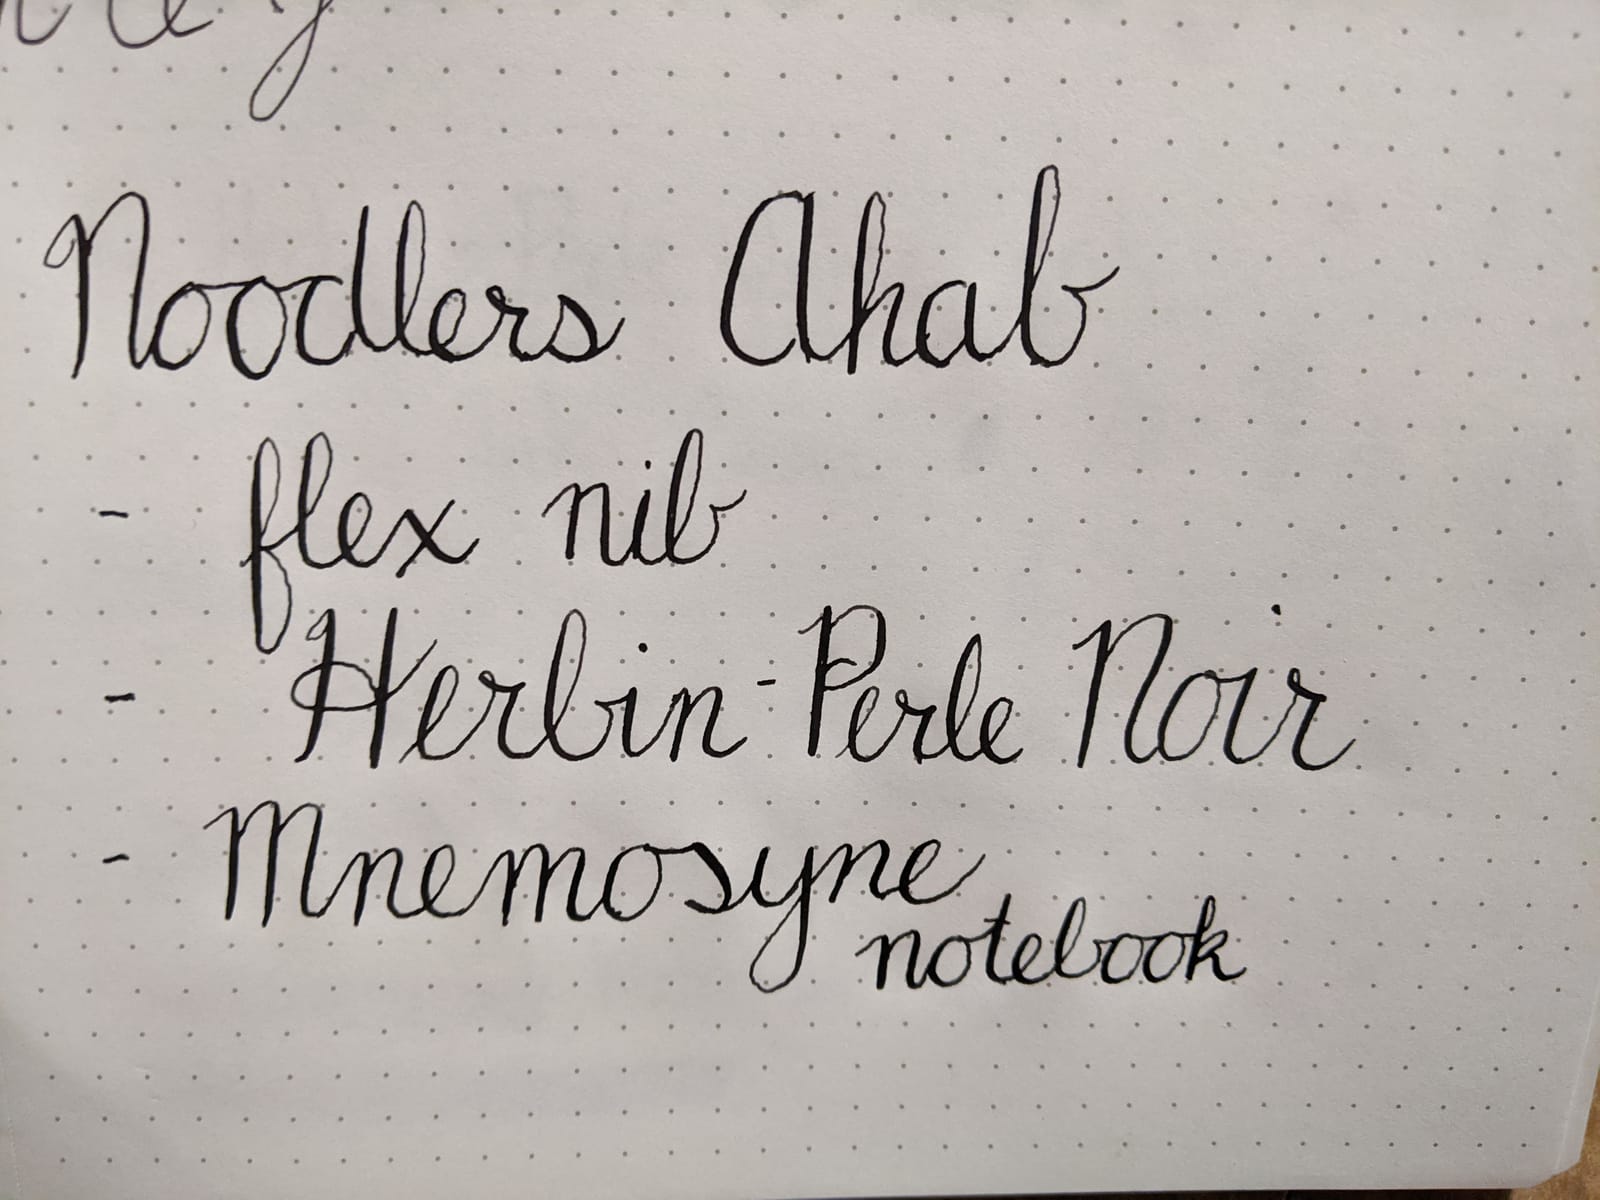 Noodlers Ahab
- flex nib
- Herbin - Perle Noir
- Mnemosyne
notebook